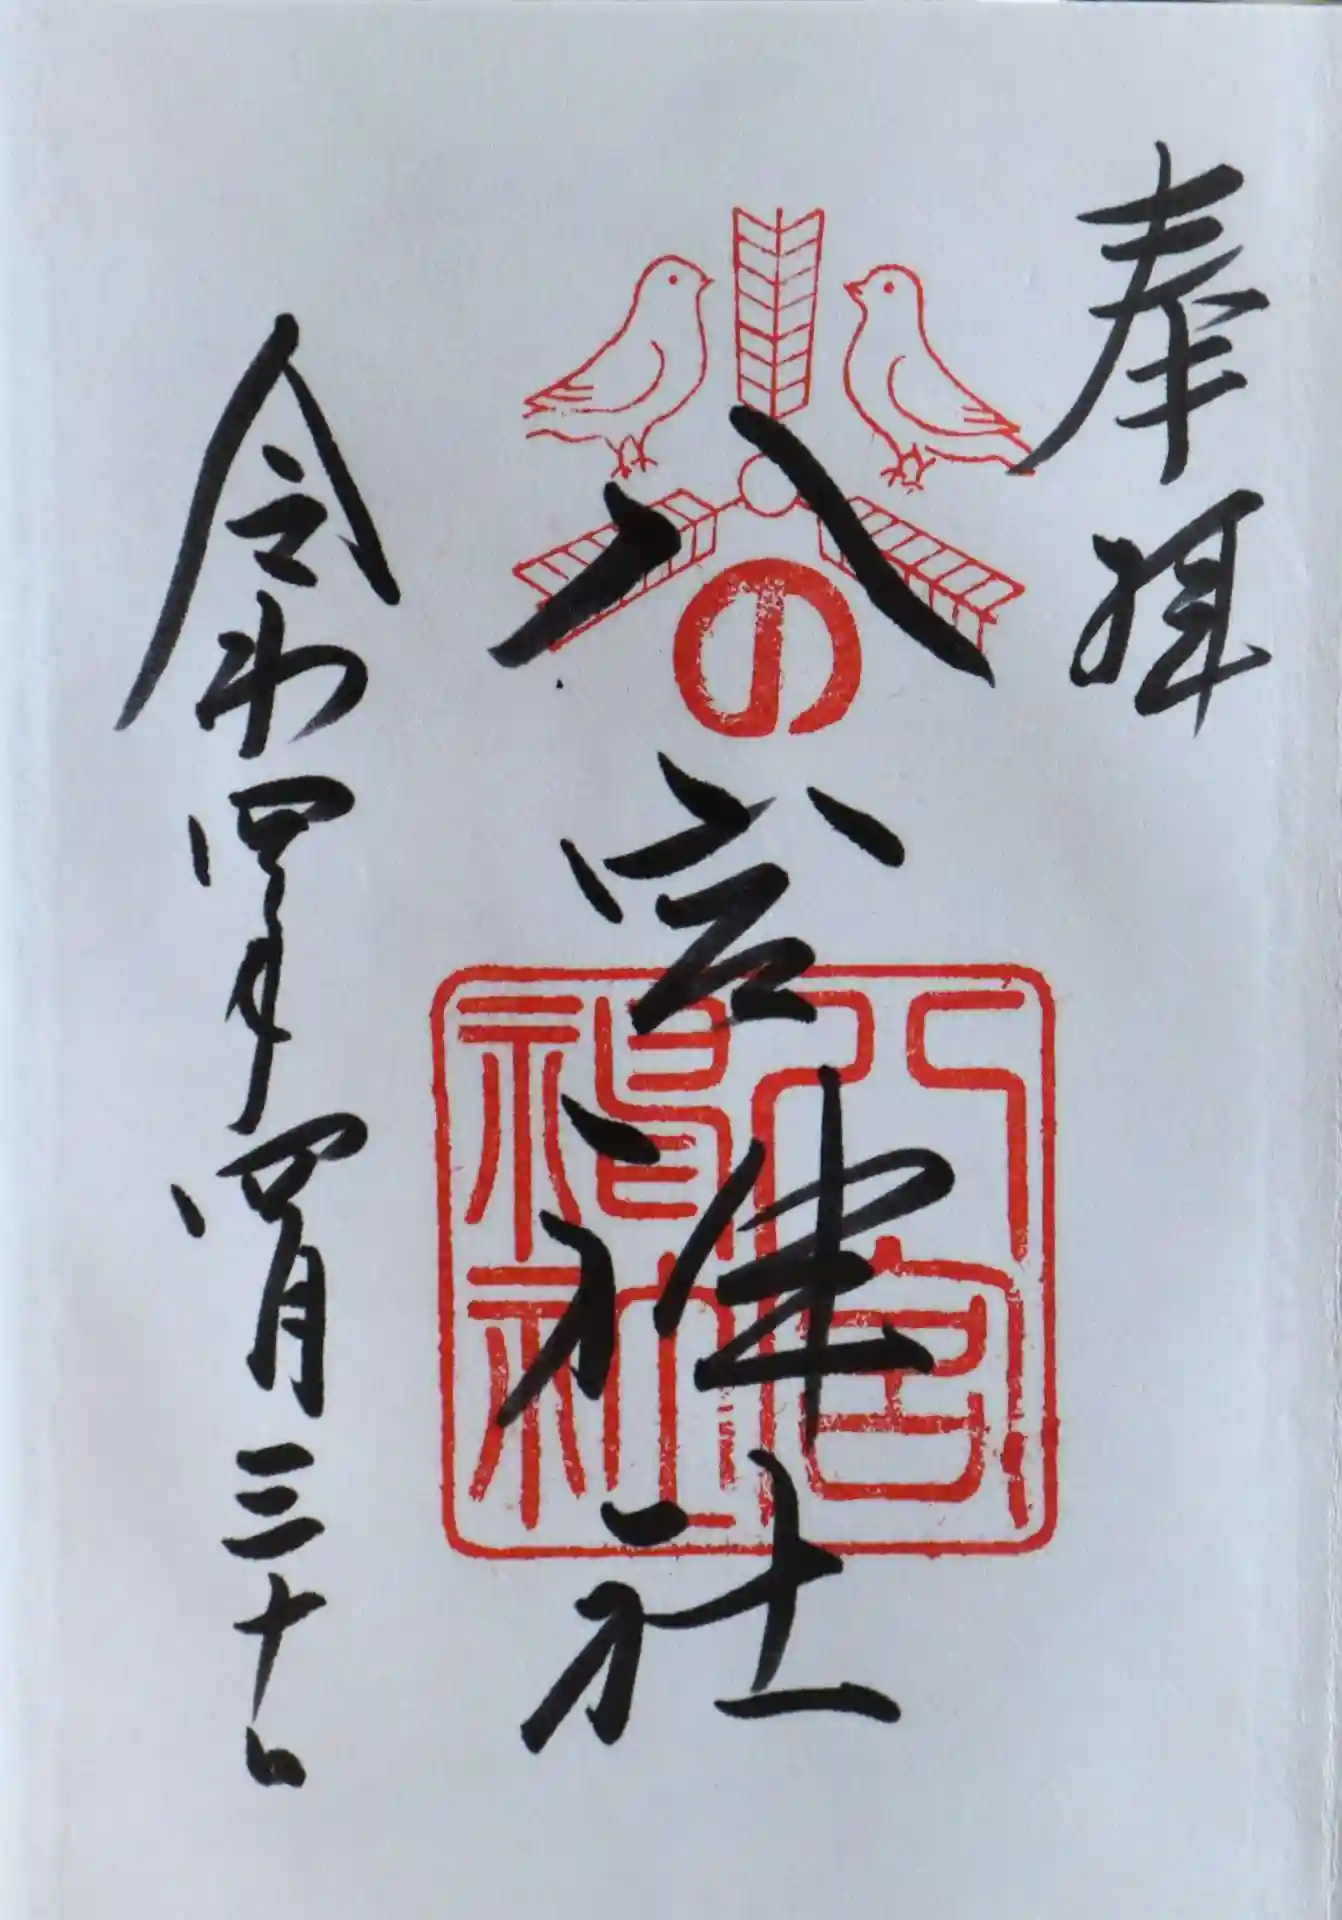 奉拝
八の宮神社
八宮神社
令和四年四月三十日